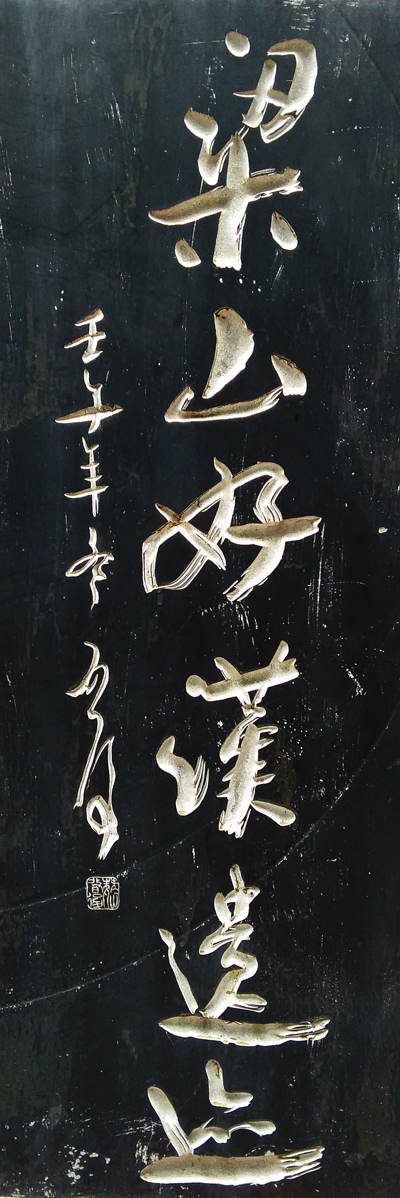 梁山好漢遺迹
壬午年冬